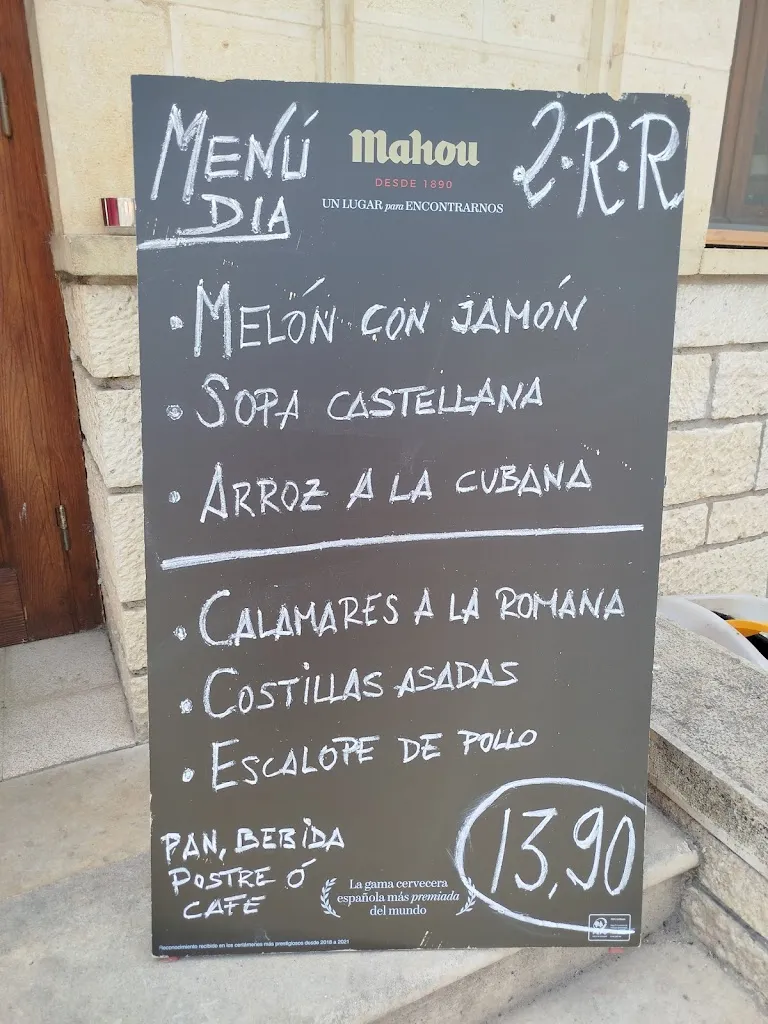 MENÚ
DIA
Mahou
DESDE 1890
UN LUGAR para ENCONTRARNOS
2.R.R
• MELÓN CON JAMÓN
• SOPA CASTELLANA
• ARROZ A LA CUBANA
• CALAMARES A LA ROMANA
• COSTILLAS ASADAS
• ESCALOPE DE POLLO
PAN, BEBIDA
POSTRE Ó
CAFE
La gama cervecera
española más premiada
del mundo
13,90
Reconocimiento recibido en los certámenes más prestigiosos desde 2018 a 2021